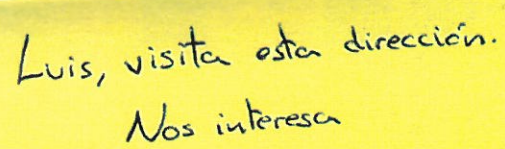 Luis, visita esta dirección.
Nos interesa